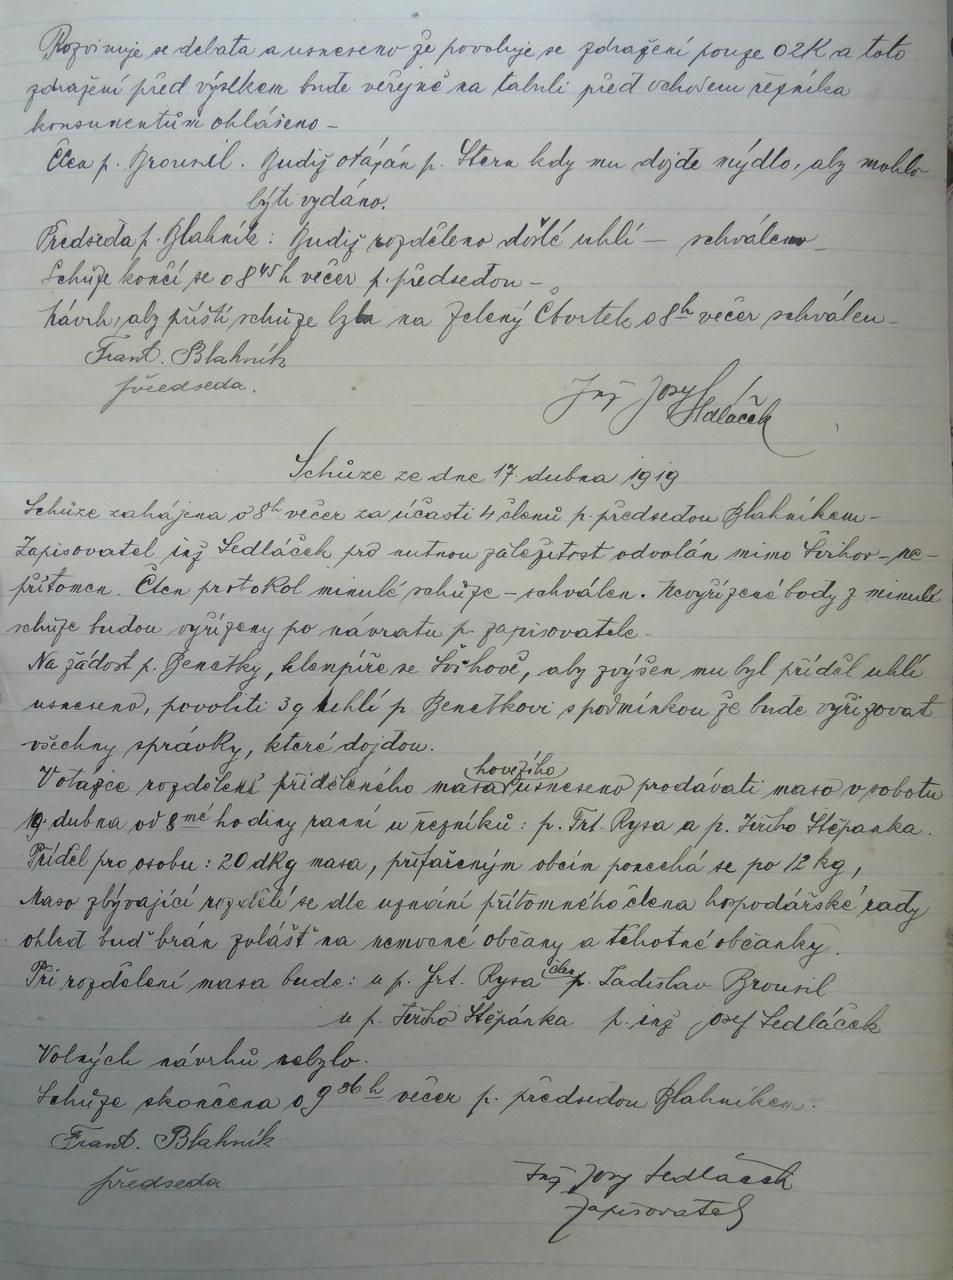 Rozvinuje se debata a usneseno že povoluje se zdražení pouze o 2K a toto
zdražení před výsekem bude veřejně na tabuli před vchodem řezníka
konsumentům ohlášeno –
Člen p. Brousil. Budiž otázán p. Štern kdy mu dojde mýdlo, aby mohlo
býti vydáno.
Předseda p. Blahník: Budiž rozděleno došlé uhlí — schváleno –
Schůze končí se o 8 45 h večer p. předsedou –
Návrh, aby příští schůze byla na Zelený Čtvrtek o 8h večer schválen –
Frant. Blahník
předseda.
Ing Josef Sedláček
Schůze ze dne 17. dubna 1919
Schůze zahájena o 8h večer za účasti 4 členů p. předsedou Blahníkem –
Zapisovatel ing Sedláček pro nutnou záležitost odvolán mimo Švihov – ne-
přítomen. Čten protokol minulé schůze – schválen. Nevyřízené body z minulé
schůze budou vyřízeny po návratu p. zapisovatele.
Na žádost p. Benetky, klempíře se Švihově, aby zvýšen mu byl příděl uhlí
usneseno, povoliti 3 q uhlí p. Benetkovi s podmínkou že bude vyřizovat
všechny správky, které dojdou.
V otázce rozdělení přiděleného masa hovězího usneseno prodávati maso v sobotu
19. dubna od 8mé hodiny ranní u řezníků: p. Frt. Rysa a p. Jiřího Štěpánka.
Příděl pro osobu: 20 dkg masa, přifařeným obcím ponechá se po 12 kg,
Maso zbývající rozdělí se dle uznání přítomného člena hospodářské rady
ohled buď brán zvlášť na nemocné občany a těhotné občanky.
Při rozdělení masa bude: u p. Frt. Rysa člen p. Ladislav Brousil
u p. Jiřího Štěpánka p. ing Josef Sedláček
Volných návrhů nebylo.
Schůze skončena o 9 36 h večer p. předsedou Blahníkem.
Frant. Blahník
předseda
Ing Josef Sedláček
Zapisovatel